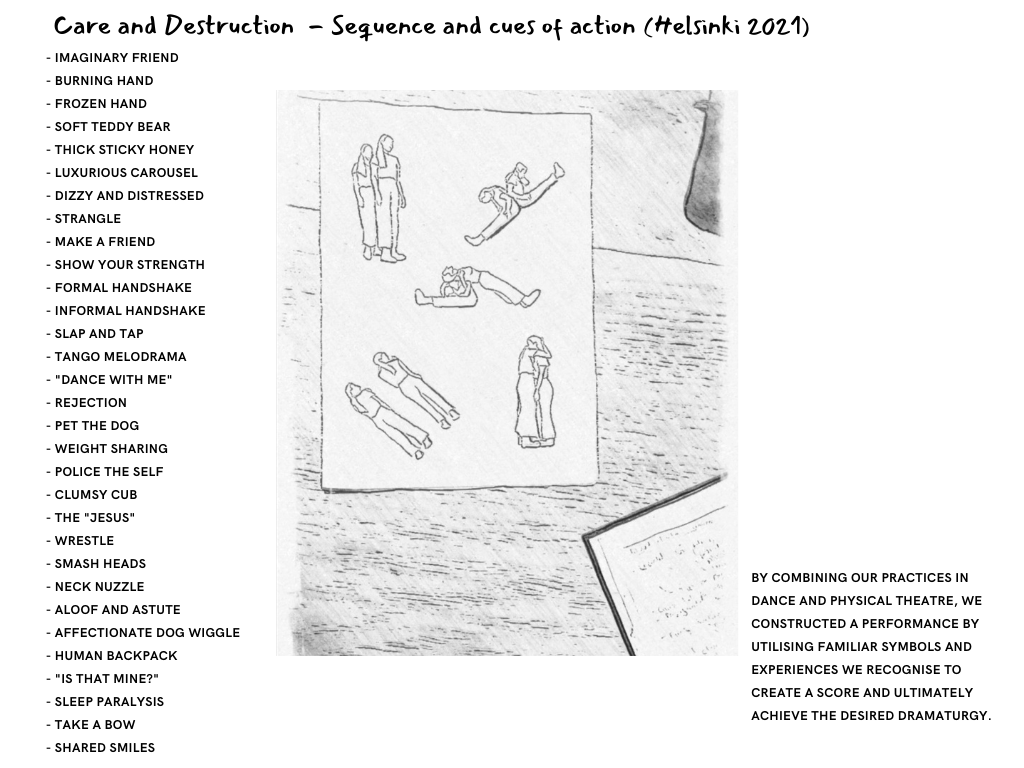 Care and Destruction – Sequence and cues of action (Helsinki 2021)
- IMAGINARY FRIEND
- BURNING HAND
- FROZEN HAND
- SOFT TEDDY BEAR
- THICK STICKY HONEY
- LUXURIOUS CAROUSEL
- DIZZY AND DISTRESSED
- STRANGLE
- MAKE A FRIEND
- SHOW YOUR STRENGTH
- FORMAL HANDSHAKE
- INFORMAL HANDSHAKE
- SLAP AND TAP
- TANGO MELODRAMA
- "DANCE WITH ME"
- REJECTION
- PET THE DOG
- WEIGHT SHARING
- POLICE THE SELF
- CLUMSY CUB
- THE "JESUS"
- WRESTLE
- SMASH HEADS
- NECK NUZZLE
- ALOOF AND ASTUTE
- AFFECTIONATE DOG WIGGLE
- HUMAN BACKPACK
- "IS THAT MINE?"
- SLEEP PARALYSIS
- TAKE A BOW
- SHARED SMILES
BY COMBINING OUR PRACTICES IN
DANCE AND PHYSICAL THEATRE, WE
CONSTRUCTED A PERFORMANCE BY
UTILISING FAMILIAR SYMBOLS AND
EXPERIENCES WE RECOGNISE TO
CREATE A SCORE AND ULTIMATELY
ACHIEVE THE DESIRED DRAMATURGY.